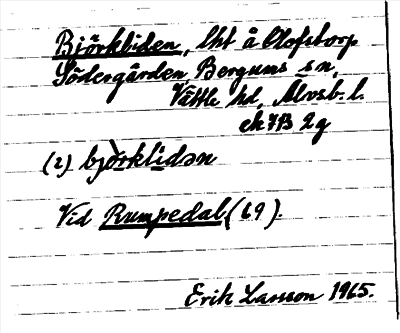 Björkliden, lht å Olofstorp
Södergården, Bergums sn,
Vättle hd, Älvsb. l.
ek 7B 2g
(2) bjö̀rklidən
Vid Rumpedal (69).
Erik Larsson 1965.